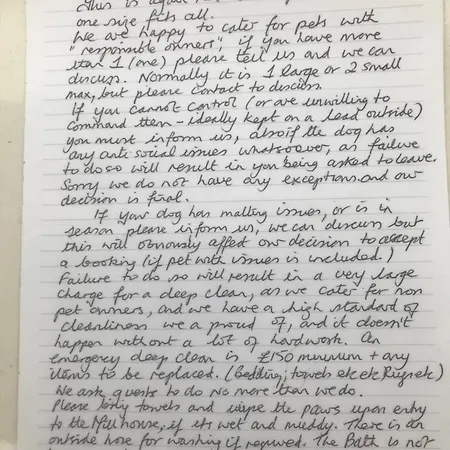 This is again
one size fits all.
We are happy to cater for pets with
"responsible owners", if you have more
than 1 (one) please tell us and we can
discuss. Normally it is 1 large or 2 small
max, but please contact to discuss.
If you cannot control (or are unwilling to
command them - ideally kept on a lead outside)
you must inform us, also if the dog has
any anti social issues whatsoever, as failure
to do so will result in you being asked to leave.
Sorry we do not have any exceptions and our
decision is final.
If your dog has malting issues, or is in
season please inform us, we can discuss but
this will obviously affect our decision to accept
a booking (if pet with issues is included.)
Failure to do so will result in a very large
charge for a deep clean, as we cater for non
pet owners, and we have a high standard of
cleanliness we a proud of, and it doesn't
happen without a lot of hardwork. An
emergency deep clean is £150 minimum + any
items to be replaced. (bedding, towels etc etc Rugs etc)
We ask guests to do no more than we do.
Please bring towels and wipe the paws upon entry
to the Mill house, if its wet and muddy. There is an
outside hose for washing if required. The Bath is not